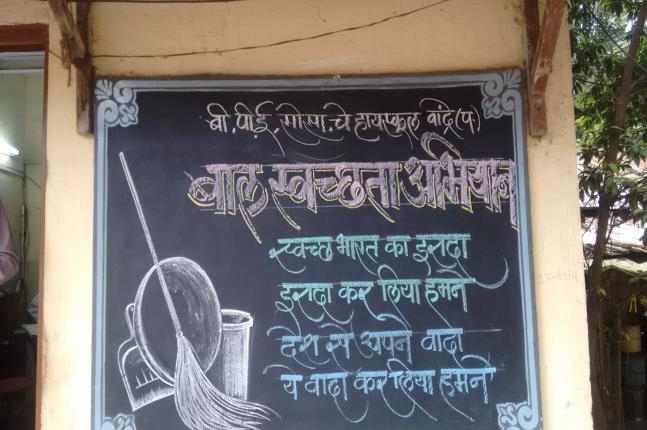 बी.पी.ई. सोसा.चे हायस्कूल वांद्रे(प.)
बाल स्वच्छता अभियान
स्वच्छ भारत का इरादा
इरादा कर लिया हमने
देश से अपने वादा
ये वादा कर लिया हमने